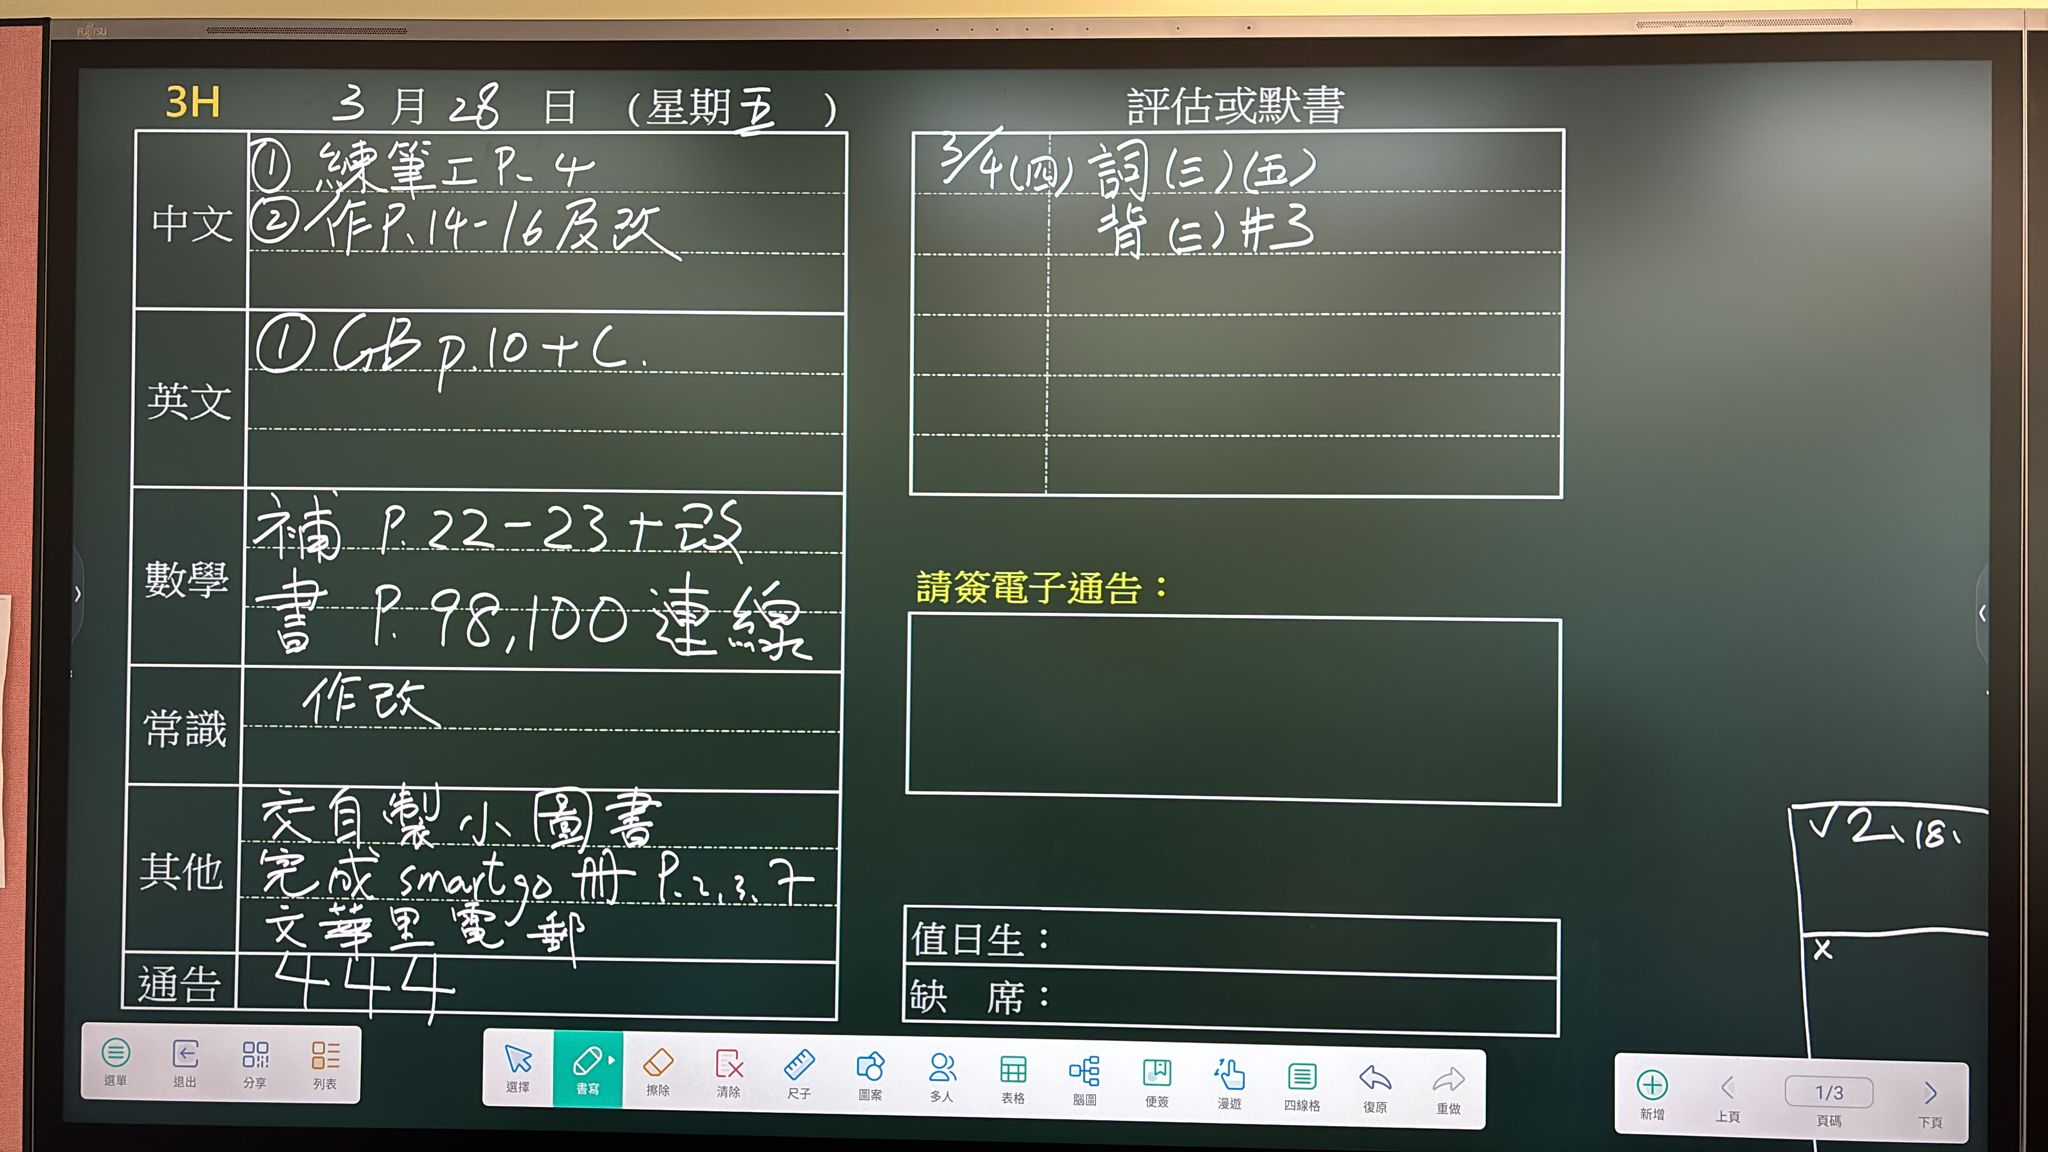 FUJITSU
3H 3月28日(星期五)
中文
① 練筆工P. 4
② 作P.14-16及改
英文
① GB p.10+C.
數學
補 P.22-23+改
書 P.98,100連線
常識
作改
其他
交自製小圖書
完成smartgo冊 P.2,3,7
文華里電郵
通告
444
評估或默書
3/4(四) 詞(三)(五)
背(三)#3
請簽電子通告：
值日生：
缺 席：
√2、18、
x
選單 退出 分享 列表
選擇 書寫 擦除 清除 尺子 圖案 多人 表格 腦圖 便簽 漫遊 四線格 復原 重做
新增 上頁 1/3 頁碼 下頁